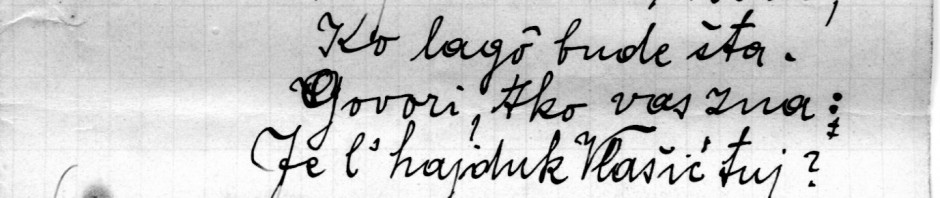 Ko lagô bude šta.
Govori, Ako vas zna:
Je l' hajduk Vlašić tuj?